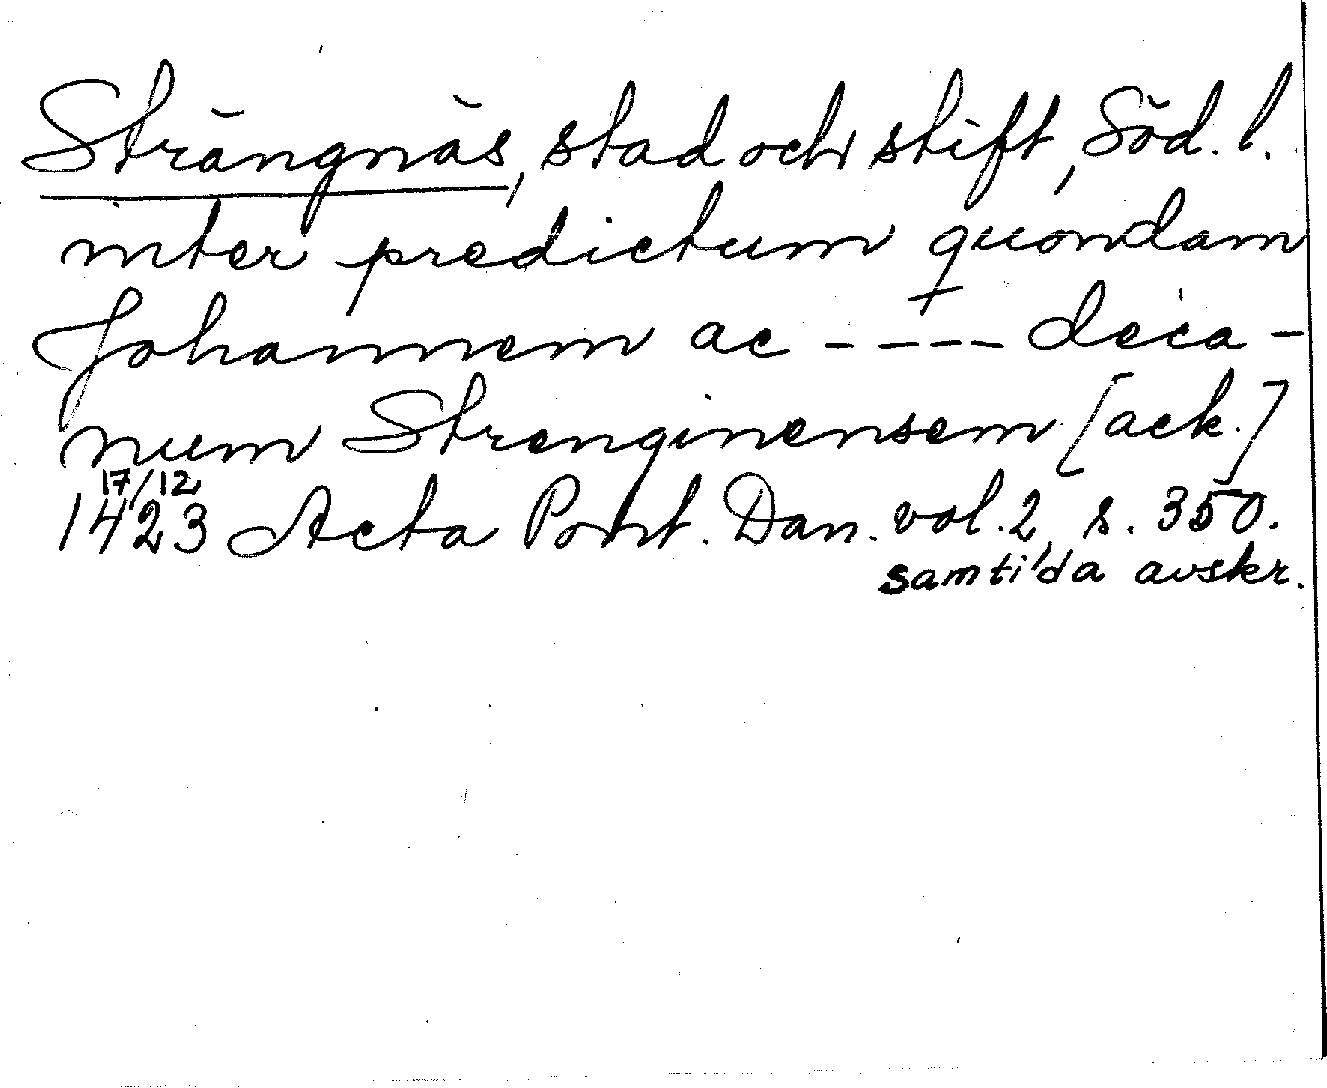 Strängnäs, stad och stift, Söd. l.
inter predictum quondam
Johannem ac ---- deca-
num Strenginensem [ack.]
17/12
1423 Acta Pont. Dan. vol. 2, s. 350.
samtida avskr.